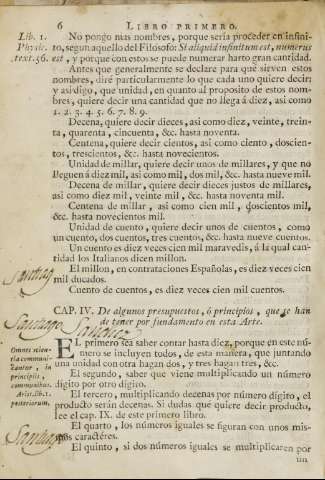 6 LIBRO PRIMERO.
Lib. 1.
Physic.
text. 56.
No pongo mas nombres, porque seria proceder en infini-
to, segun aquello del Filosofo: Si aliquid infinitum est, numerus
est, y porque con estos se puede numerar harto gran cantidad.
Antes que generalmente se declare para què sirven estos
nombres, dire particularmente lo que cada uno quiere decir;
y asi digo, que unidad, en quanto al proposito de estos nom-
bres, quiere decir una cantidad que no llega à diez, asi como
1. 2. 3. 4. 5. 6. 7. 8. 9.
Decena, quiere decir dieces, asi como diez, veinte, trein-
ta, quarenta, cincuenta, &c. hasta noventa.
Centena, quiere decir cientos, asi como ciento, doscien-
tos, trescientos, &c. hasta novecientos.
Unidad de millar, quiere decir unos de millares, y que no
lleguen à diez mil, asi como mil, dos mil, &c. hasta nueve mil.
Decena de millar, quiere decir dieces justos de millares,
asi como diez mil, veinte mil, &c. hasta noventa mil.
Centena de millar, asi como cien mil, doscientos mil,
&c. hasta novecientos mil.
Unidad de cuento, quiere decir unos de cuentos, como
un cuento, dos cuentos, tres cuentos, &c. hasta nueve cuentos.
Un cuento es diez veces cien mil maravedis, à la qual can-
tidad los Italianos dicen millon.
El millon, en contrataciones Españolas, es diez veces cien
mil ducados.
Cuento de cuentos, es diez veces cien mil cuentos.
Santiago
CAP. IV. De algunos presupuestos, ò principios, que se han
de tener por fundamento en esta Arte.
Santiago Sanchez
Omnes scien-
tia communi-
cantur, in
principiis,
communibus.
Arist. lib. 1.
posteriorum.
EL primero sea saber contar hasta diez, porque en este nu-
mero se incluyen todos, de esta manera, que juntando
una unidad con otra hagan dos, y tres hagan tres, &c.
El segundo, saber que viene multiplicando un número
digito por otro digito.
El tercero, multiplicando decenas por número digito, el
producto serán decenas. Si dudas que quiere decir producto,
lee el cap. IX. de este primero libro.
El quarto, los números iguales se figuran con unos mis-
mos caractéres.
Santiago
El quinto, si dos números iguales se multiplicaren por
un